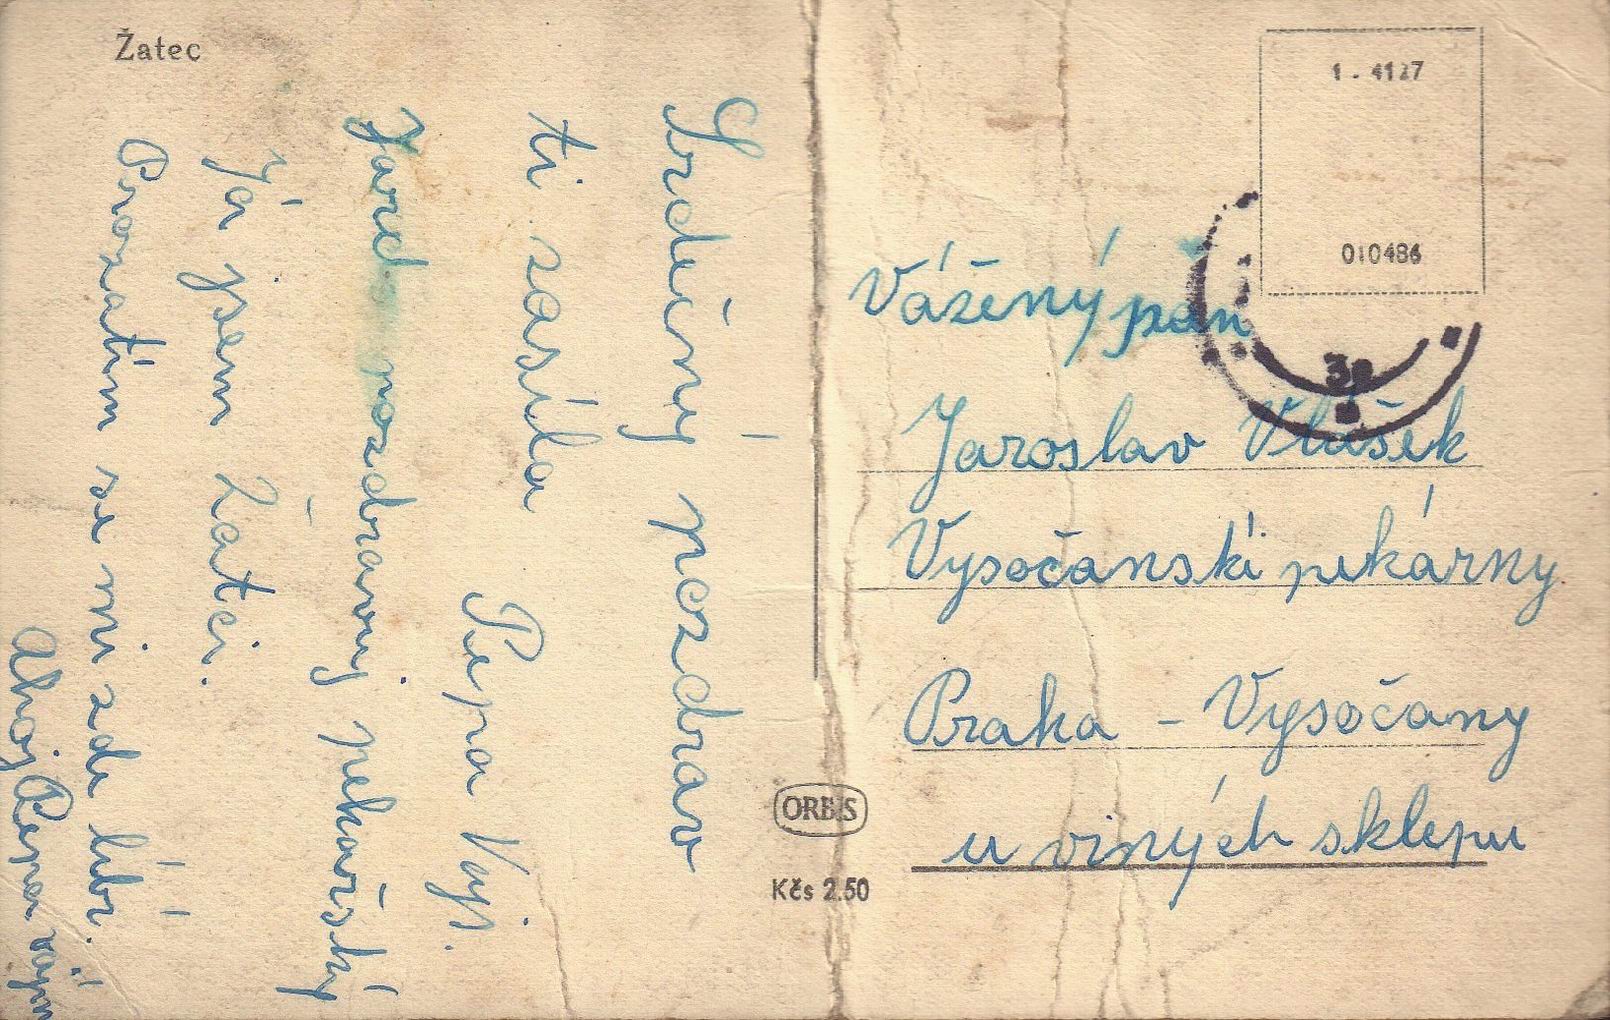 Žatec
Srdečný pozdrav
ti zasíla
Pepa
Jardo pozdravuj pekařský
Já jsem Žatci.
Prozatím se mi zde líbí.
Ahoj Pepa
1 - 4127
010486
Vážený pán
Jaroslav Vlášek
Vysočanski pekárny
Praha - Vysočany
u viných sklepu
ORBIS
Kčs 2.50